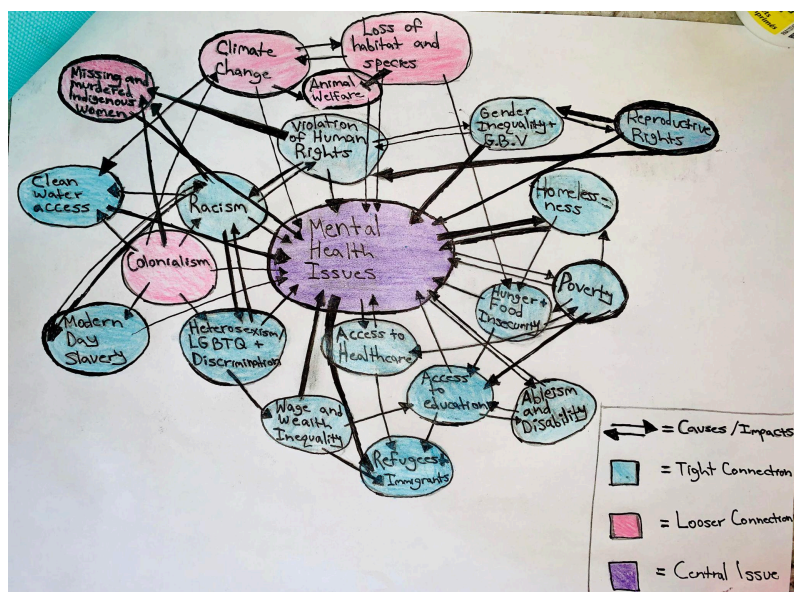 Climate
Change
Loss of
habitat and
species
Missing and
murdered
indigenous
women
Animal
Welfare
Violation
of Human
Rights
Gender
Inequality +
G.B.V
Reproductive
Rights
Clean
water
access
Racism
Homeless-
ness
Mental
Health
Issues
Colonialism
Poverty
Hunger +
Food
Insecurity
Modern
Day
Slavery
Heterosexism
LGBTQ +
Discrimination
Access to
Healthcare
Access
to
education
Ableism
and
Disability
Wage and
Wealth
Inequality
Refugees
Immigrants
= Causes / Impacts
= Tight Connection
= Looser Connection
= Central Issue